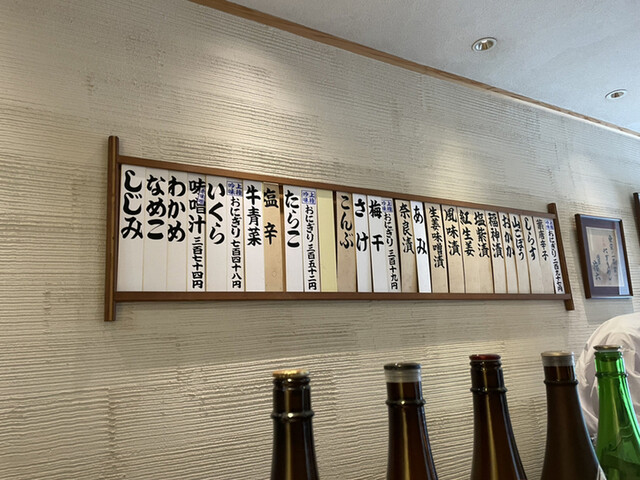 おにぎり 二百八十七円
葉唐辛子
しらす
山ごぼう
おかか
福神漬
塩紫漬
紅生姜
風味漬
生姜味噌漬
あみ
奈良漬
上撰吟味 おにぎり 三百十九円
梅干
さけ
こんぶ
上撰吟味 おにぎり 三百五十二円
たらこ
塩辛
牛青菜
上撰吟味 おにぎり 七百四十八円
いくら
味噌汁 三百七十四円
わかめ
なめこ
しじみ